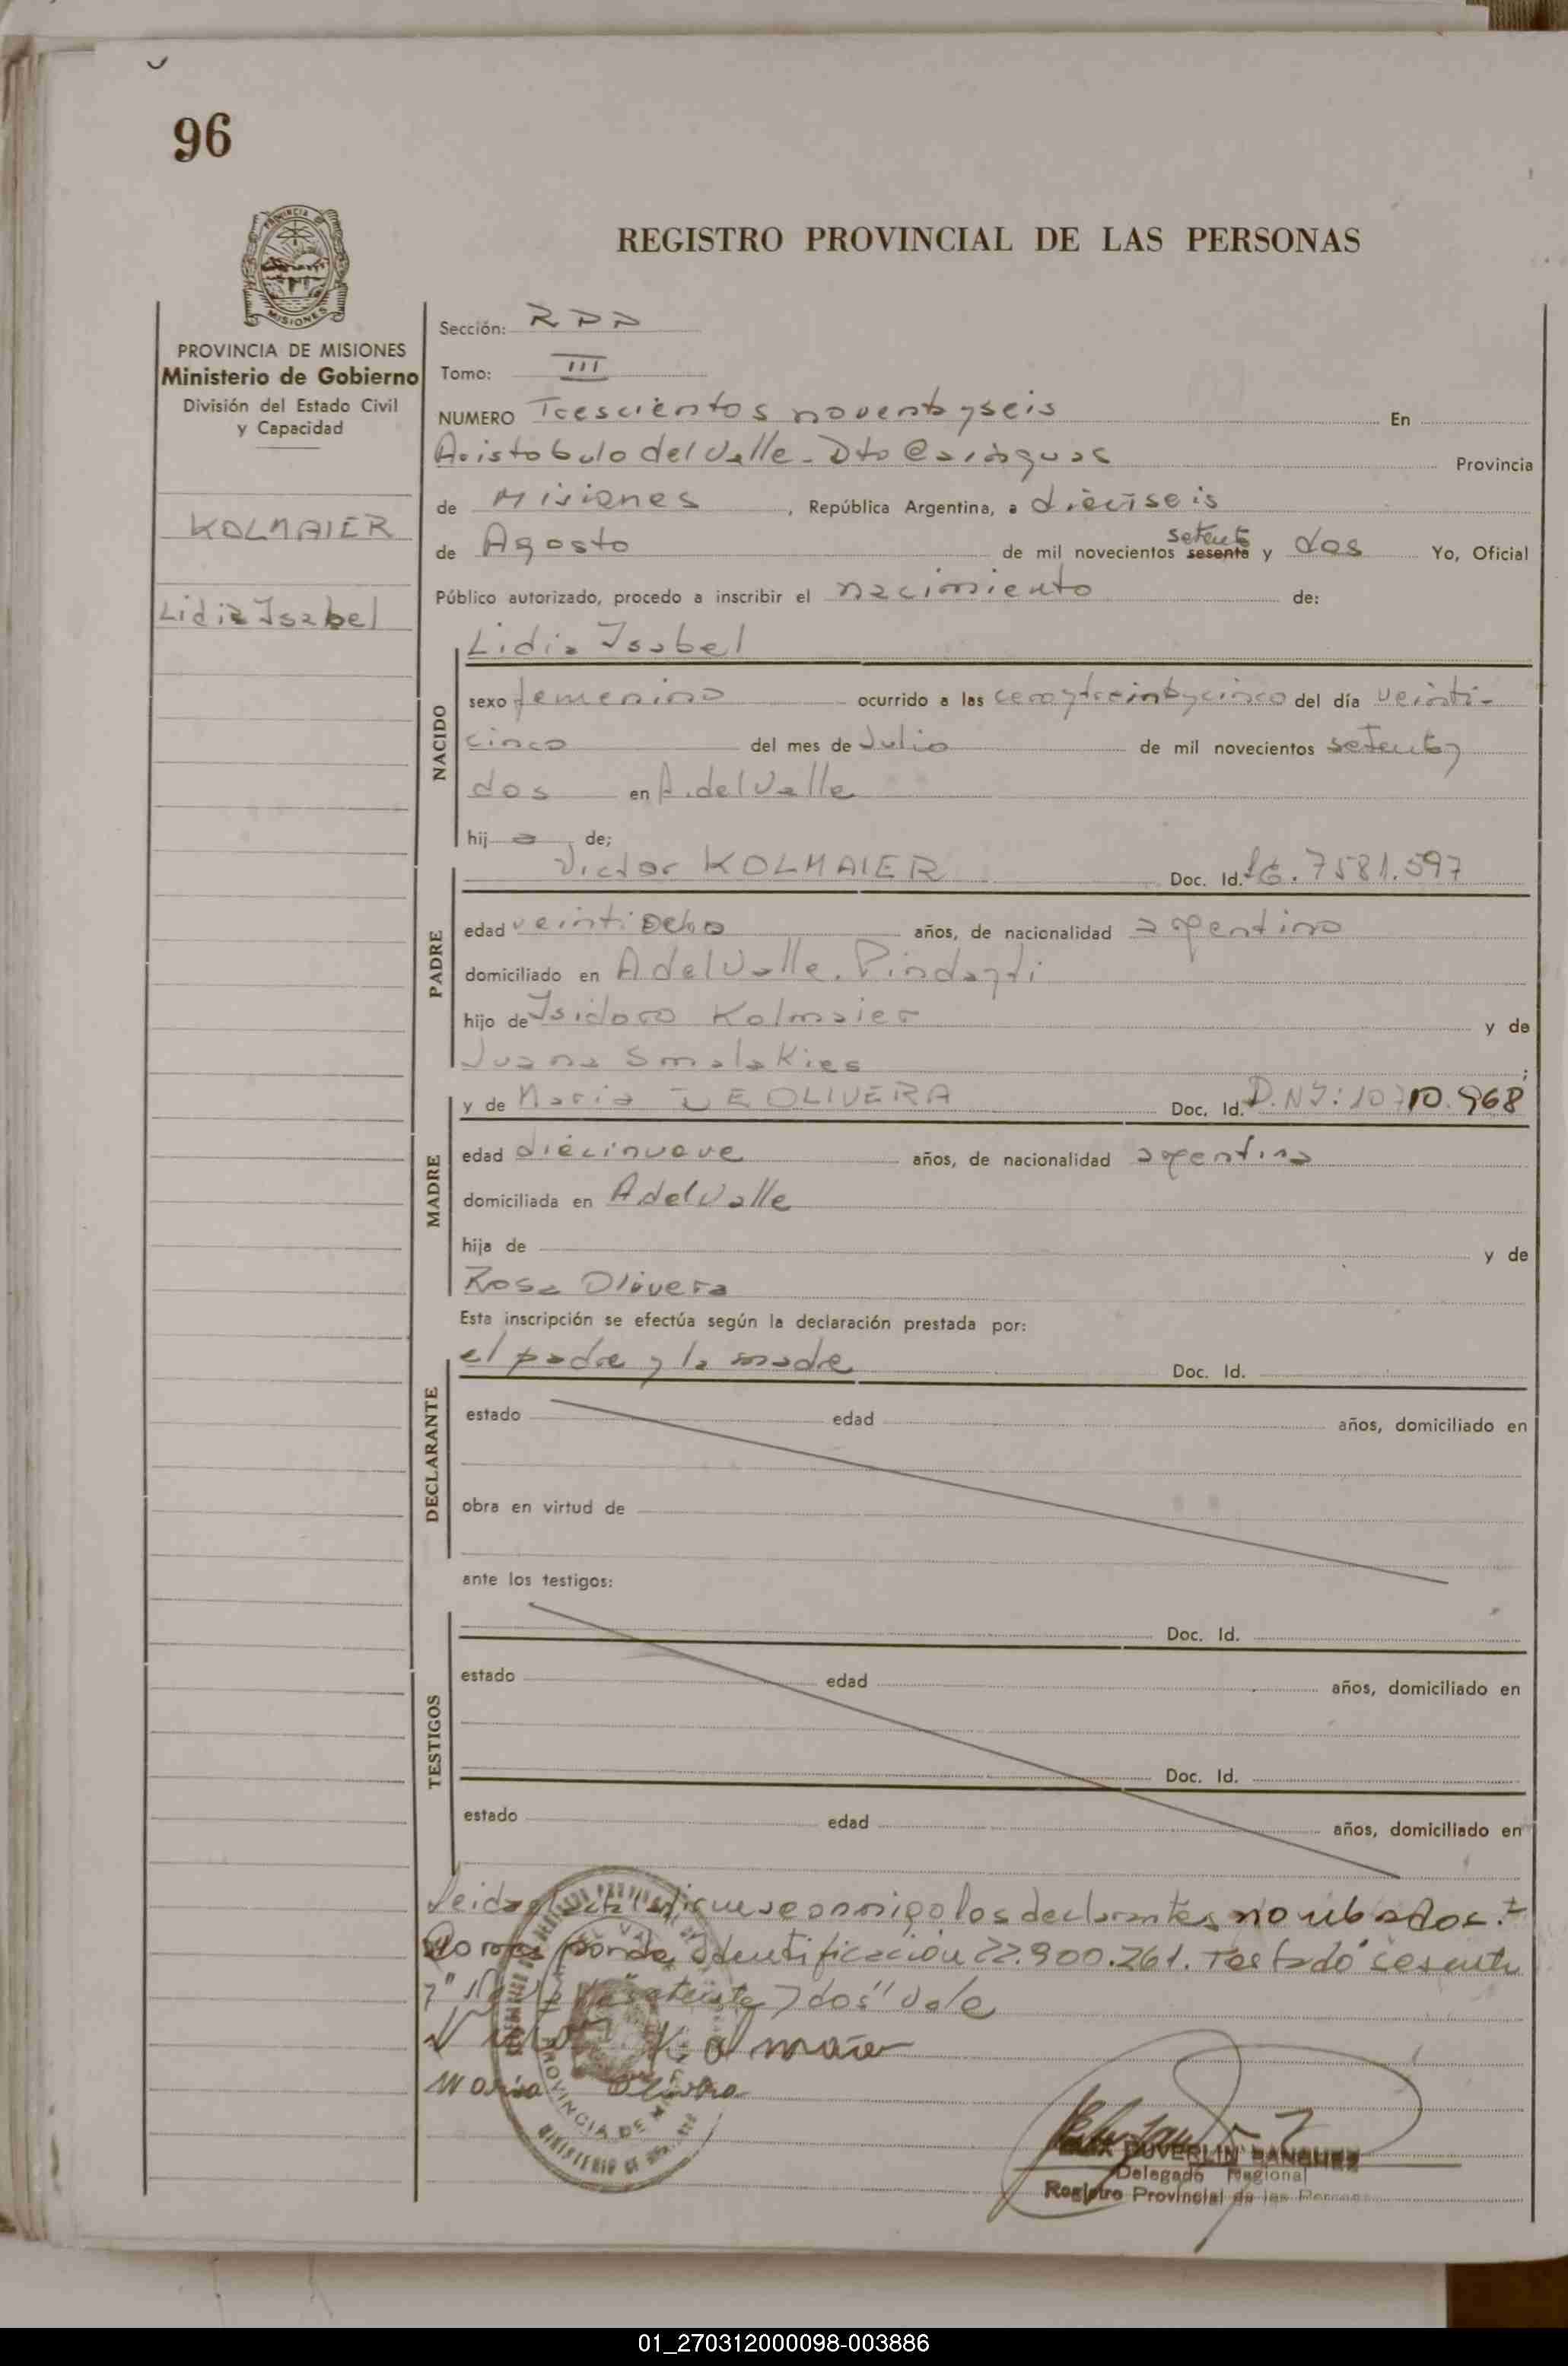 96
REGISTRO PROVINCIAL DE LAS PERSONAS
PROVINCIA DE MISIONES
Ministerio de Gobierno
División del Estado Civil
y Capacidad
KOLMAIER
Lidia Isabel
Sección: RPP
Tomo: III
NUMERO Trescientos noventa y seis En
Aristobulo del Valle - Dto Cainguas Provincia
de Misiones, República Argentina, a dieciseis
setenta
de Agosto de mil novecientos sesenta y dos Yo, Oficial
Público autorizado, procedo a inscribir el nacimiento de:
NACIDO
Lidia Isabel
sexo femenino ocurrido a las cero y treinta y cinco del día veinti-
cinco del mes de Julio de mil novecientos setenta y
dos en A. del Valle
hij a de;
PADRE
Victor KOLMAIER Doc. Id. 7581.597
edad veintiocho años, de nacionalidad argentino
domiciliado en A del Valle. Pindayti
hijo de Isidoro Kolmaier y de
Juana Smalakies;
MADRE
y de Maria DE OLIVERA Doc. Id. D.N.I: 10.710.968
edad diecinueve años, de nacionalidad argentina
domiciliada en A del Valle
hija de y de
Rosa Olivera
Esta inscripción se efectúa según la declaración prestada por:
DECLARANTE
el padre y la madre Doc. Id.
estado edad años, domiciliado en
obra en virtud de
ante los testigos:
TESTIGOS
Doc. Id.
estado edad años, domiciliado en
Doc. Id.
estado edad años, domiciliado en
Leida el acta la firman conmigo los declarantes no
identificación 22.900.261. Testado "sesenta
y" setenta y dos" vale
Victor Kolmaier
Maria Olivera
PROVINCIA DE
MINISTERIO DE
DUVERLIN SANCHEZ
Delegado Regional
Registro Provincial de las Personas
01_270312000098-003886